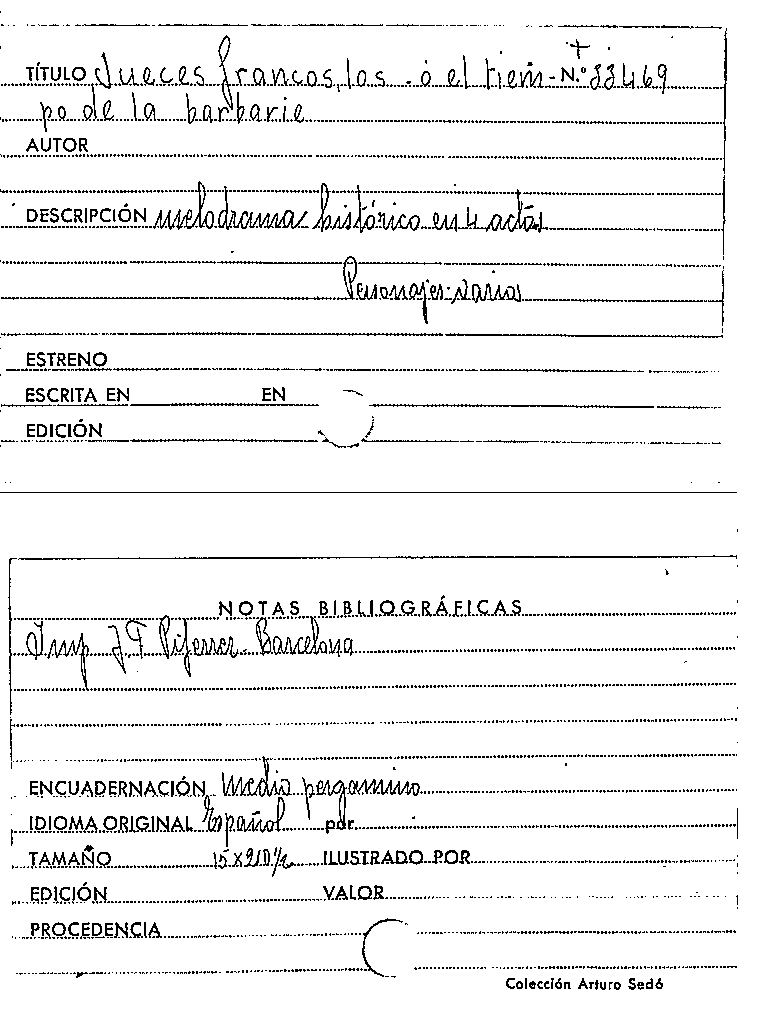 TÍTULO Jueces francos, los .ó el tiem- N.º 33469
po de la barbarie
AUTOR
DESCRIPCIÓN melodrama histórico en 4 actos
Personajes: varios
ESTRENO
ESCRITA EN EN
EDICIÓN
NOTAS BIBLIOGRÁFICAS
Imp J.F Piferrer. Barcelona
ENCUADERNACIÓN Medio pergamino
IDIOMA ORIGINAL Español por
TAMAÑO ILUSTRADO POR
EDICIÓN VALOR
PROCEDENCIA
Colección Arturo Sedó